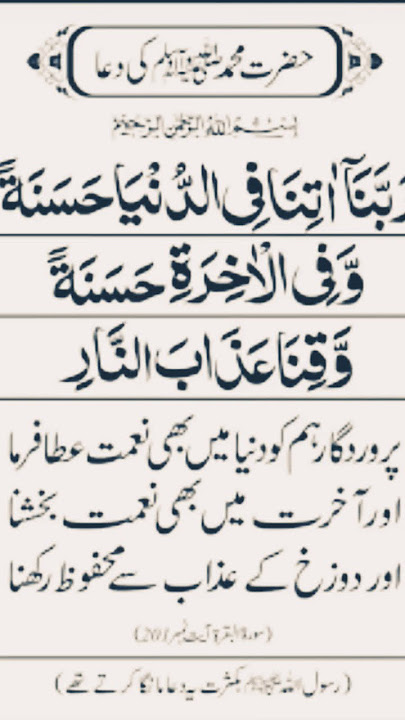 حضرت محمد ﷺ کی دعا
بِسْمِ اللهِ الرَّحْمٰنِ الرَّحِيْمِ
رَبَّنَآ اٰتِنَا فِی الدُّنْيَا حَسَنَةً
وَّفِی الْاٰخِرَةِ حَسَنَةً
وَّقِنَا عَذَابَ النَّارِ
پروردگار ہم کو دنیا میں بھی نعمت عطا فرما
اور آخرت میں بھی نعمت بخشنا
اور دوزخ کے عذاب سے محفوظ رکھنا
(سورة البقرة آیت نمبر 201)
(رسول اللہ ﷺ بکثرت یہ دعا مانگا کرتے تھے)